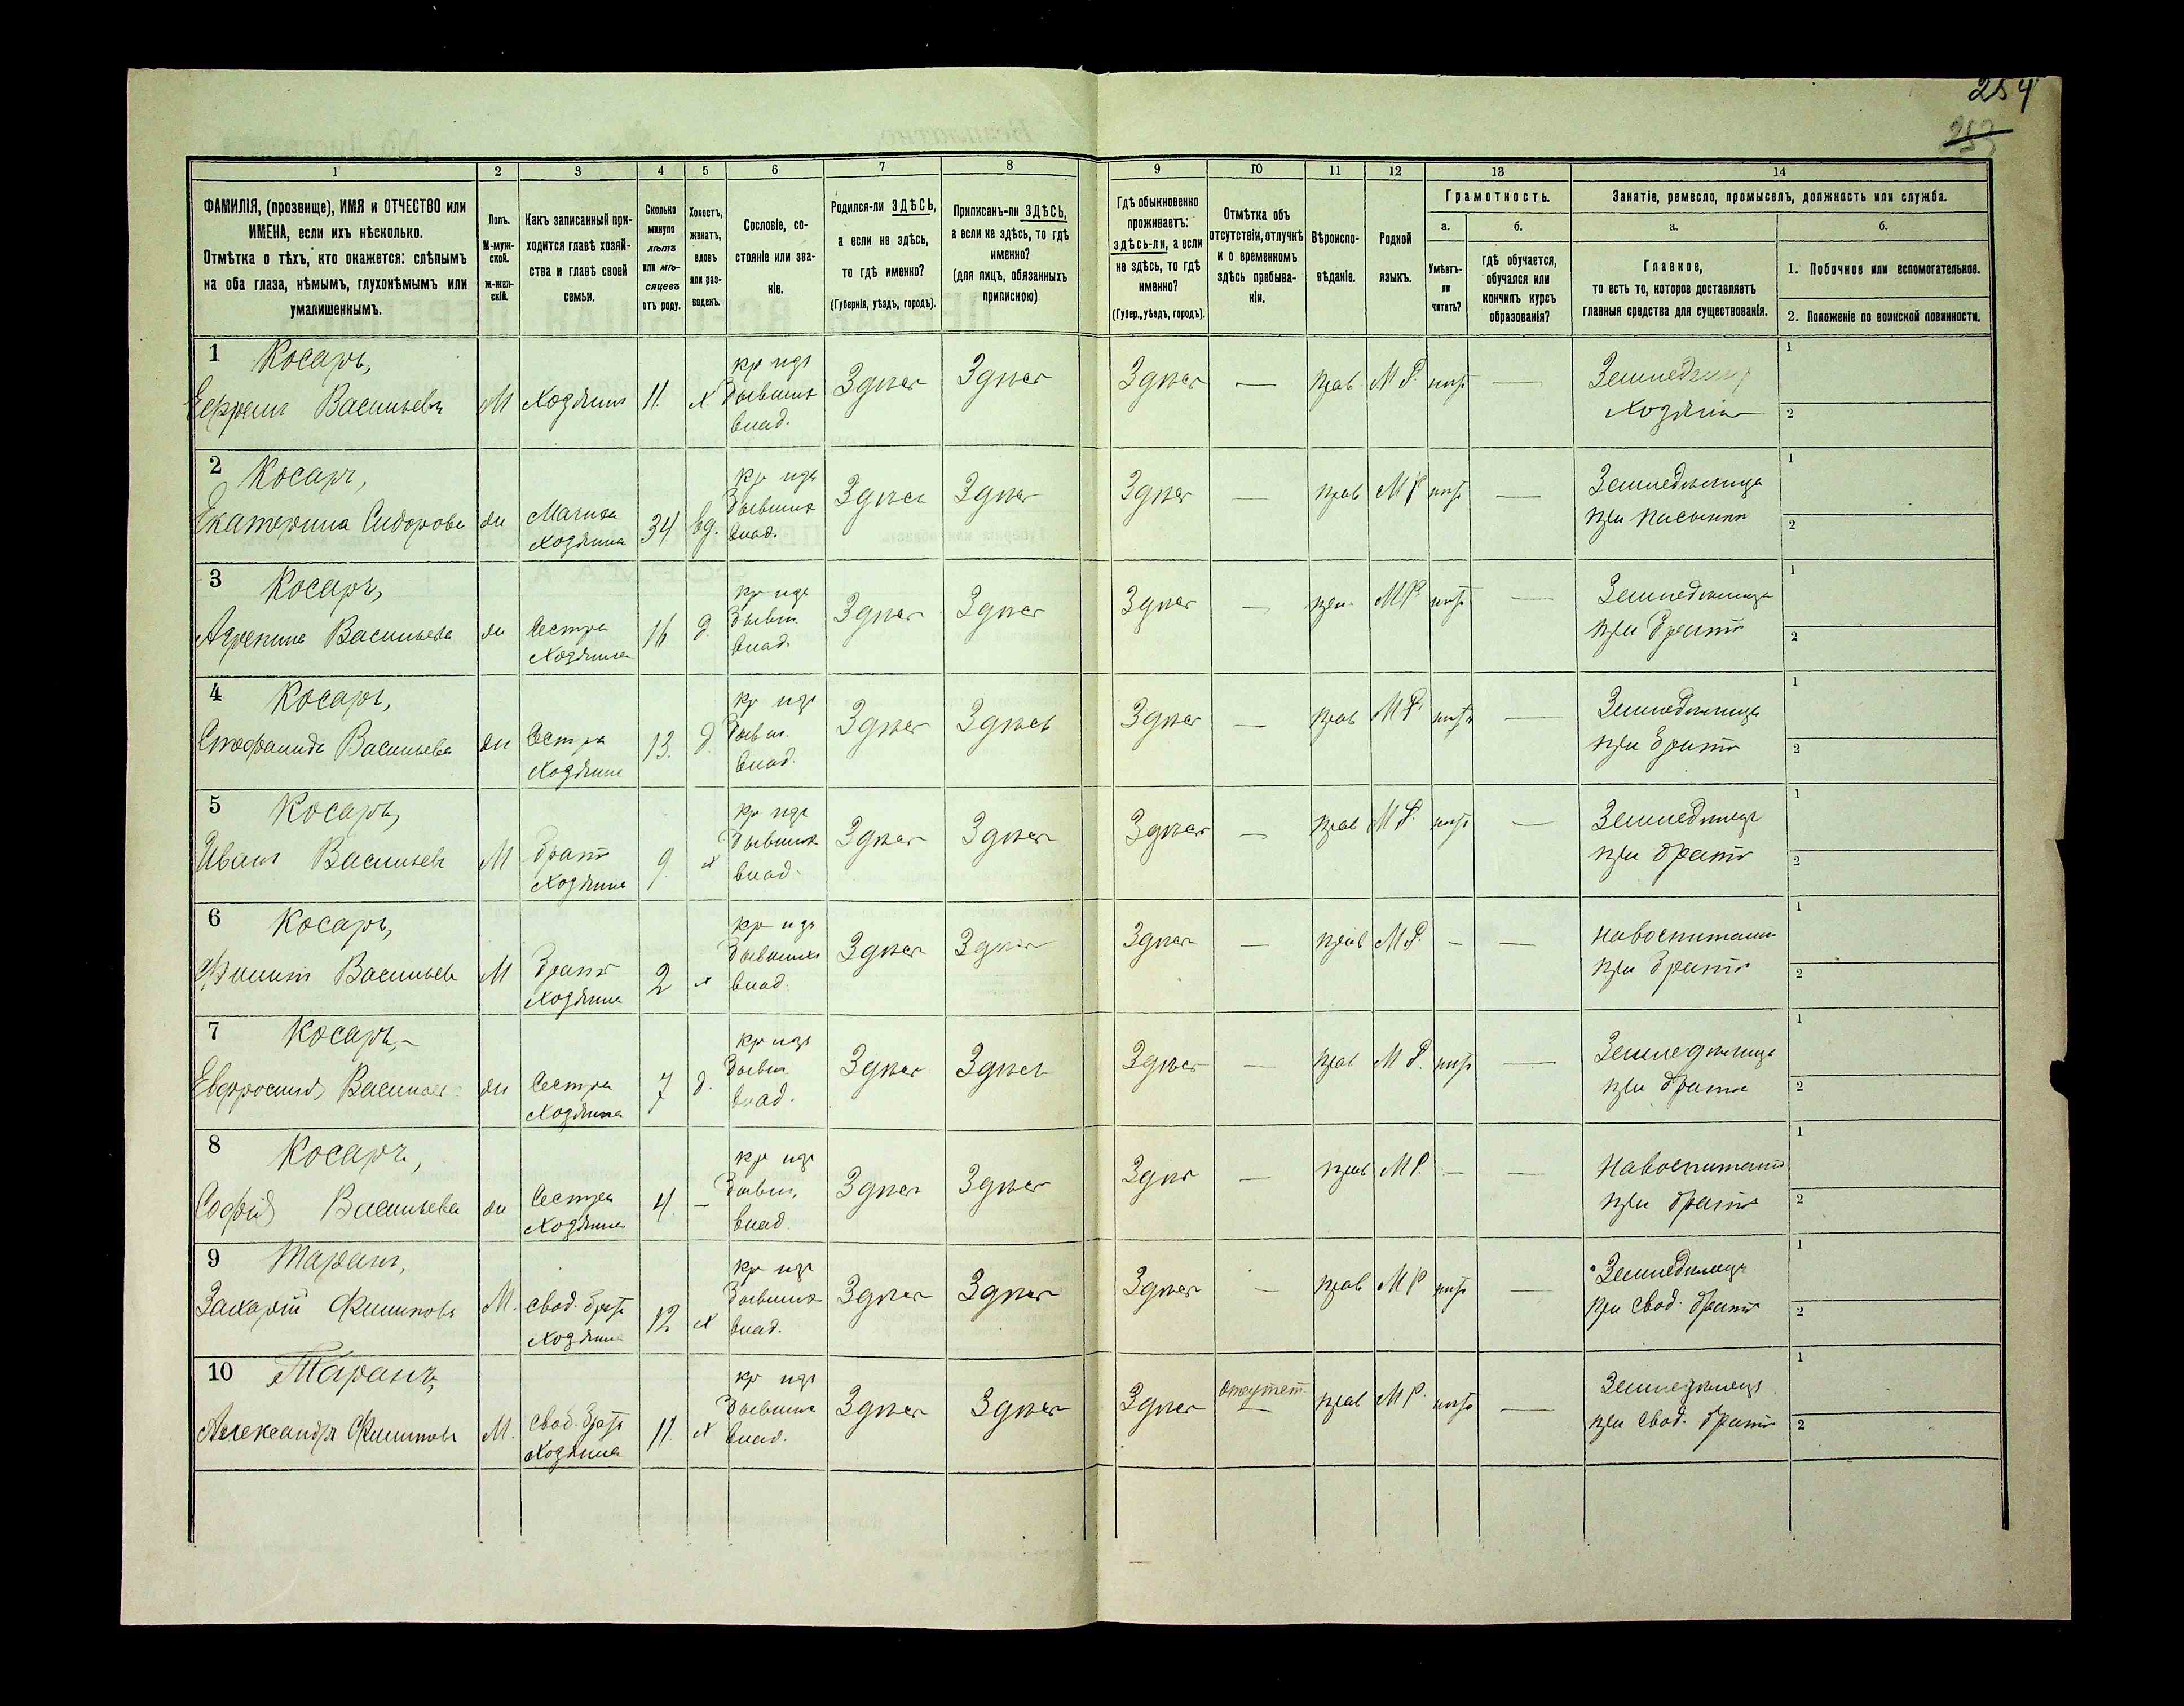 254
253
1
2
3
4
5
6
7
8
9
10
11
12
13
14
ФАМИЛІЯ, (прозвище), ИМЯ и ОТЧЕСТВО или
ИМЕНА, если ихъ нѣсколько.
Отмѣтка о тѣхъ, кто окажется: слѣпымъ
на оба глаза, нѣмымъ, глухонѣмымъ или
умалишеннымъ.
Полъ.
М-муж-
ской.
Ж-жен-
скій.
Какъ записанный при-
ходится главѣ хозяй-
ства и главѣ своей
семьи.
Сколько
минуло
лѣтъ
или мѣ-
сяцевъ
отъ роду.
Холостъ,
женатъ,
вдовъ
или раз-
веденъ.
Сословіе, со-
стояніе или зва-
ніе.
Родился-ли ЗДѢСЬ,
а если не здѣсь,
то гдѣ именно?
(Губернія, уѣздъ, городъ).
Приписанъ-ли ЗДѢСЬ,
а если не здѣсь, то гдѣ
именно?
(для лицъ, обязанныхъ
припискою)
Гдѣ обыкновенно
проживаетъ:
здѣсь-ли, а если
не здѣсь, то гдѣ
именно?
(Губер., уѣздъ, городъ).
Отмѣтка объ
отсутствіи, отлучкѣ
и о временномъ
здѣсь пребыва-
ніи.
Вѣроиспо-
вѣданіе.
Родной
языкъ.
Грамотность.
а.
Умѣетъ-
ли
читать?
б.
гдѣ обучается,
обучался или
кончилъ курсъ
образованія?
Занятіе, ремесло, промыселъ, должность или служба.
а.
Главное,
то есть то, которое доставляетъ
главныя средства для существованія.
б.
1. Побочное или вспомогательное.
2. Положеніе по воинской повинности.
1 Косаръ,
Ефремъ Васильевъ М Хозяинъ 11 х
кр изъ
бывших
влад.
Здѣсь Здѣсь Здѣсь — прав М Р. нѣтъ —
Хозяинъ
1
2
2 Косаръ,
Екатерина Сидорова ж
Мачиха
хозяина
34 вд.
кр изъ
бывших
влад.
Здѣсь Здѣсь Здѣсь — прав М Р нѣтъ —
Земледѣлица
при пасынкѣ
1
2
3 Косаръ,
Агрепина Васильева ж
Сестра
Хозяина
16 д.
кр изъ
бывш.
влад.
Здѣсь Здѣсь Здѣсь — М Р. нѣтъ —
Земледѣлица
при братѣ
1
2
4 Косаръ,
Стефанида Васильева ж
Сестра
Хозяина
13. д.
кр изъ
бывш.
влад.
Здѣсь Здѣсь Здѣсь — прав М Р. нѣтъ —
Земледѣлица
при братѣ
1
2
5 Косаръ,
Иванъ Васильевъ М
братъ
хозяина
9. х
кр изъ
бывших
влад.
Здѣсь Здѣсь Здѣсь — прав М Р. нѣтъ —
Земледѣлецъ
при братѣ
1
2
6 Косаръ,
Филипъ Васильевъ М
братъ
хозяина
2 х
кр изъ
бывших
влад.
Здѣсь Здѣсь Здѣсь — прав М Р. — —
при братѣ
1
2
7 Косаръ,
Евфросинія Васильев ж
Сестра
Хозяина
7 д.
кр изъ
бывш
влад.
Здѣсь Здѣсь Здѣсь — прав М Р. нѣтъ —
Земледѣлица
при братѣ
1
2
8 Косаръ,
Софія Васильева ж
Сестра
Хозяина
4 —
кр изъ
бывш.
влад.
Здѣсь Здѣсь Здѣсь — прав М Р. — —
при братѣ
1
2
9 Таранъ,
Захарій Филиповъ М.
свод. братъ
хозяина
12 х
кр изъ
бывших
влад.
Здѣсь Здѣсь Здѣсь — прав М Р нѣтъ —
Земледѣлецъ
при свод. братѣ
1
2
10 Таранъ,
Александръ Филиповъ М.
свод. братъ
хозяина
11. х
кр изъ
бывших
влад.
Здѣсь Здѣсь Здѣсь — прав М Р. нѣтъ —
Земледѣлецъ
при свод. братѣ
1
2